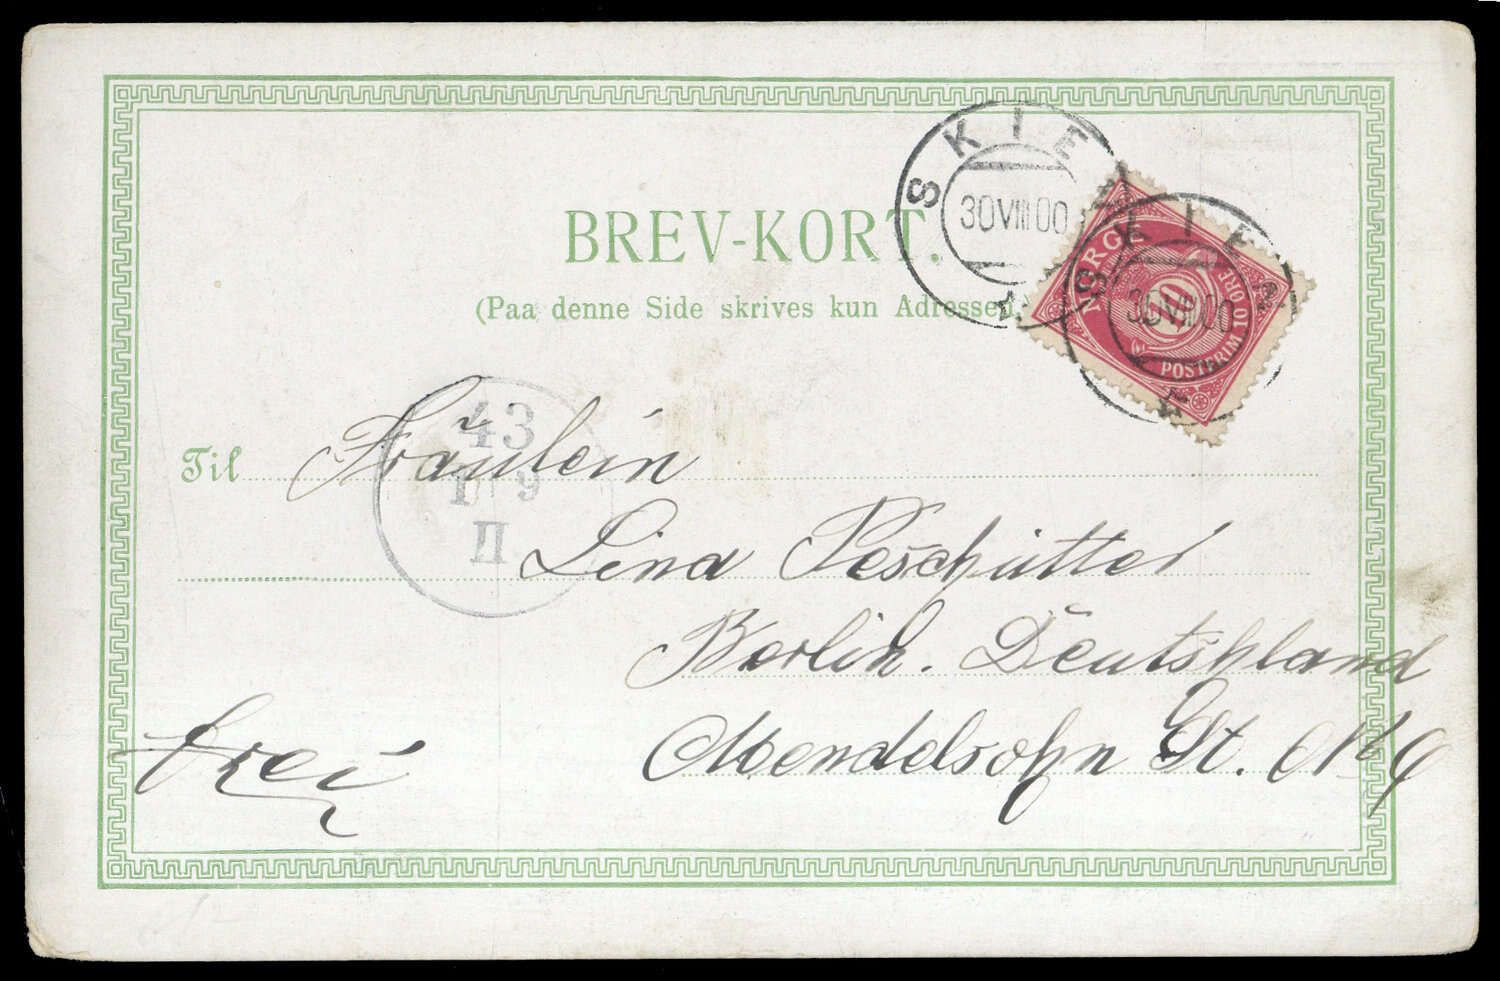 BREV-KORT.
(Paa denne Side skrives kun Adressen.)
SKIEN
30 VIII 00
SKIEN
30 VIII 00
NORGE
10
POSTFRIM 10 ØRE
43
1 9
II
Til Fräulein
Lina Peschütter
Berlin. Deutshland
Mendelsohn St. No 9
frei